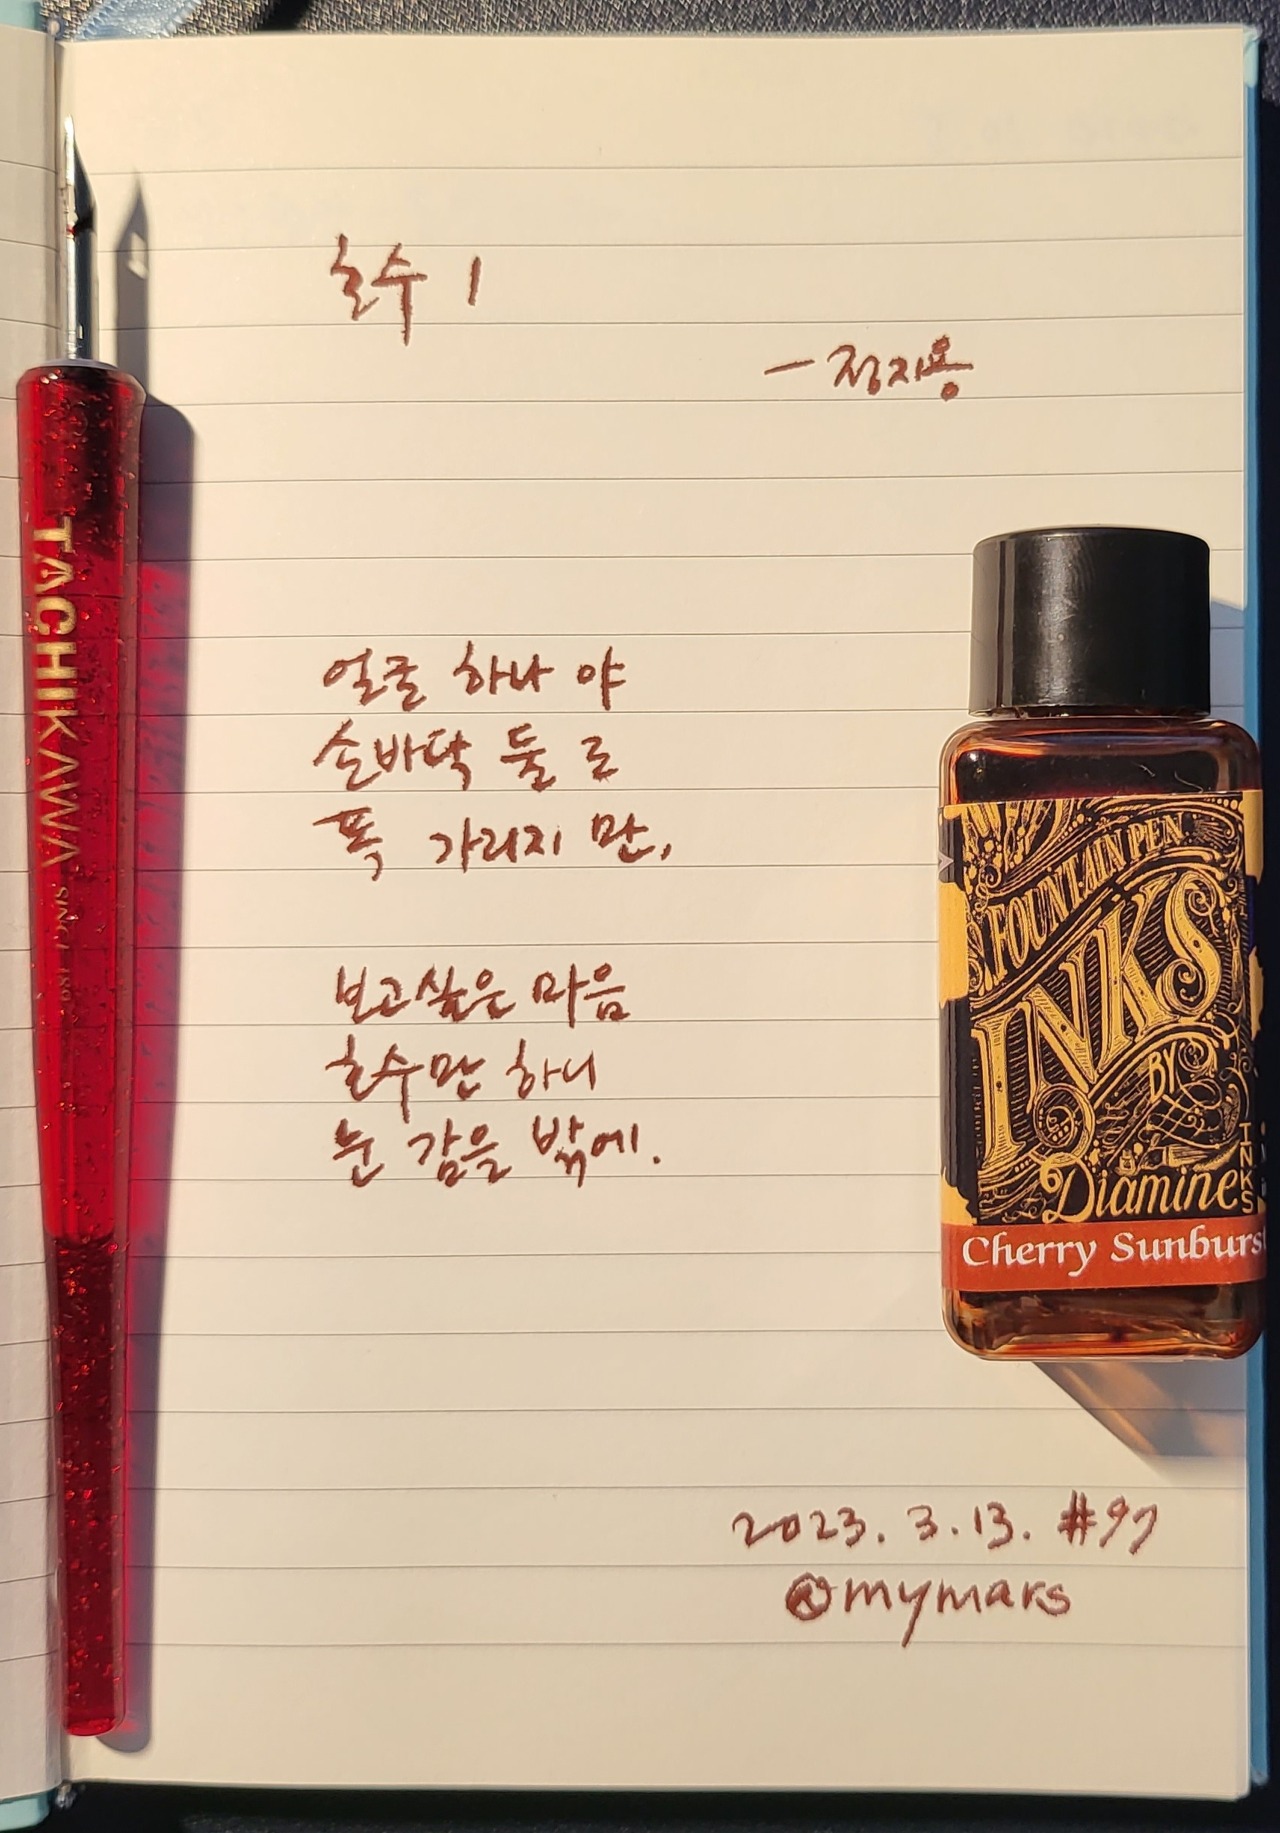 호수 1
— 정지용
얼굴 하나 야
손바닥 둘 로
폭 가리지 만,
보고싶은 마음
호수만 하니
눈 감을 밖에.
2023. 3. 13. #97
@mymars
TACHIKAWA SINCE
FOUNTAIN PEN
INKS
BY
Diamine
INKS
Cherry Sunburst